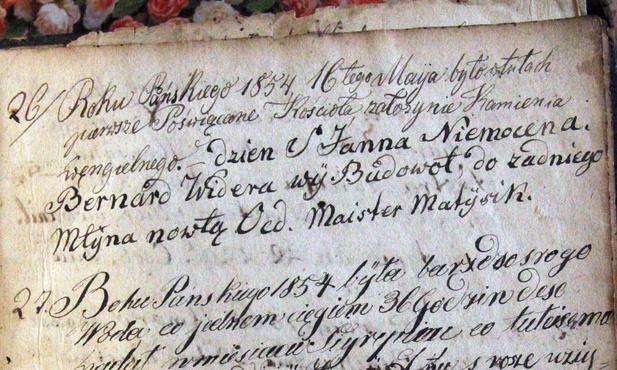 26/ Roku Pańskiego 1854, 16tego Maya było w tutach
pierwsze Poswięcone Koscioła założynie Kamienia
wengielnego. dzien S Janna Niemocena.
Bernard Widera wÿ Budowoł, do zadniego
Młÿna nowłą Ocd. Maister Matÿsik.
27. Boku Panskiego 1854 bÿła barzdso srogo
Woda co jednem ciągiem 36 Godzin desc
padał w miesiącu co
s rosze